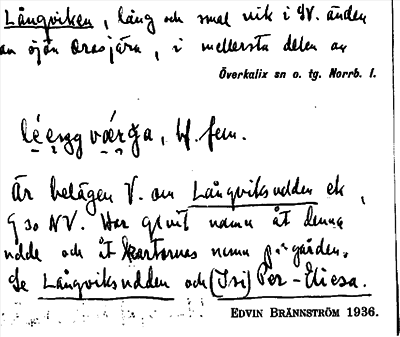 Långviken, lång och smal vik i SV. änden
an sjön Orasjärv, i mellersta delen av
Överkalix sn o. tg. Norrb. l.
bf. fem.
Är belägen V. om Långviksudden ek,
9 so NV. Har givit namn åt denna
udde och åt kartornas namn på gården.
Se Långviksudden och (Isi) Per-
EDVIN BRÄNNSTRÖM 1936.